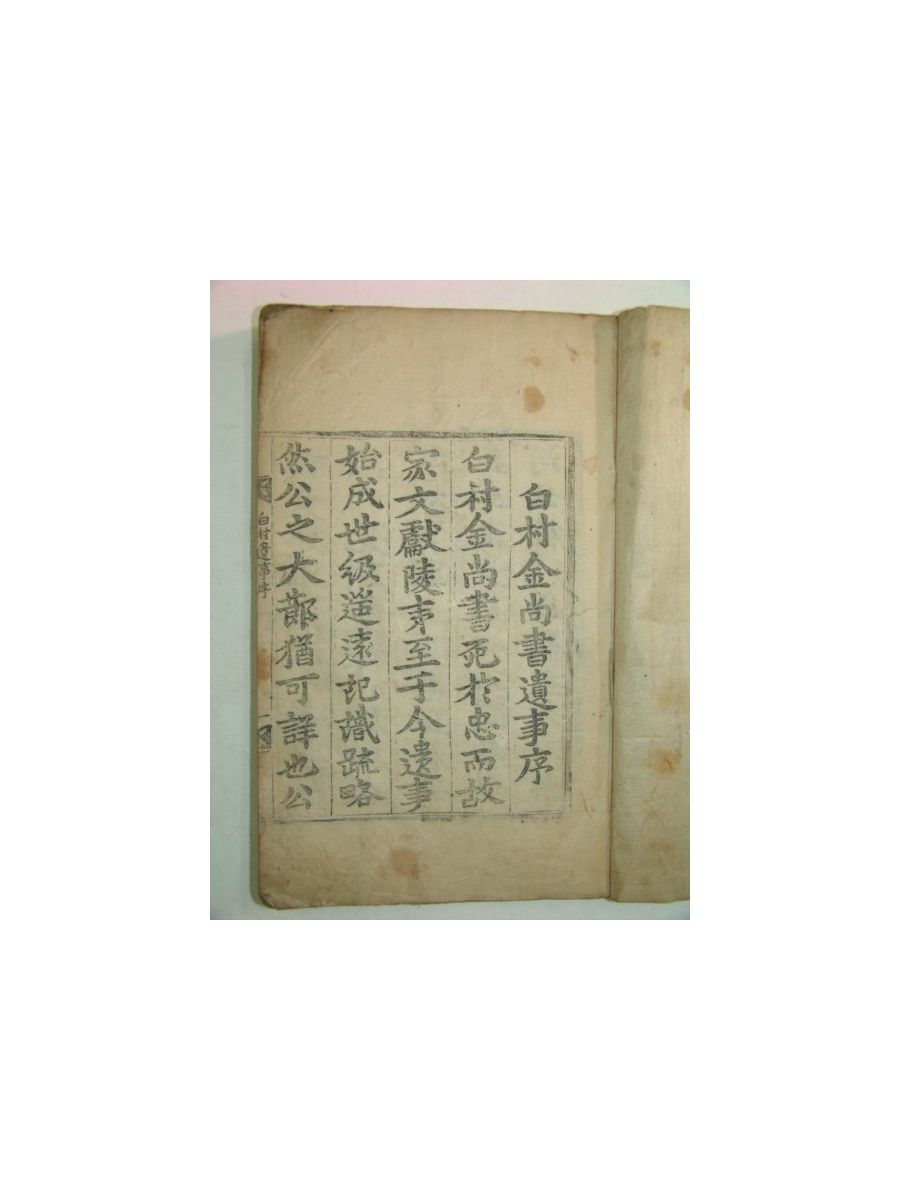 白村金尚書遺事序
白村金尚書死於忠而故
家文獻陵夷至于今遺事
始成世級遙遠記識疏略
然公之大節猶可詳也公
白村遺事序